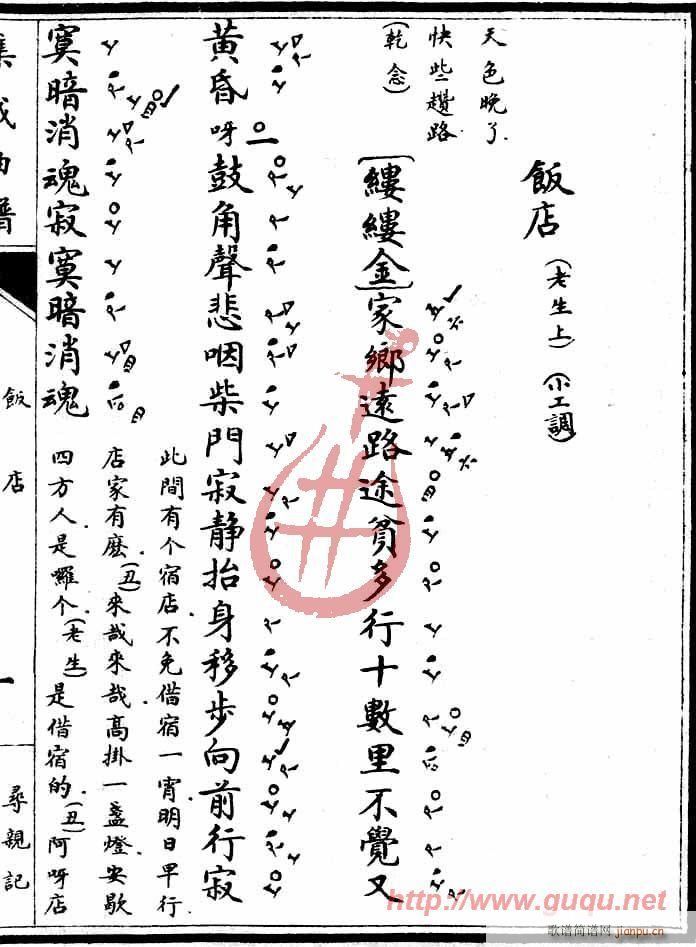 飯店（老生上）（小工調）
天色晚了
快些趲路
（乾念）
〔縷縷金〕家鄉遠路途貧多行十數里不覺又
黃昏呀鼓角聲悲咽柴門寂靜抬身移步向前行寂
寞暗消魂寂寞暗消魂
此間有个宿店不免借宿一宵明日早行
店家有麽（丑）來哉來哉高掛一盞燈安歇
四方人是囉个（老生）是借宿的（丑）阿呀店
集成曲譜
飯店
一
尋親記
http://www.guqu.net
歌谱简谱网
jianpu.cn